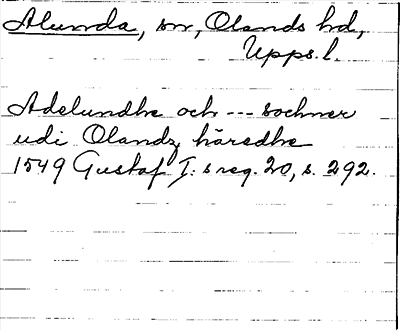 Alunda, sn, Olands hd,
Upps. l.
Adelundhe och --- sochner
udi Olandz häredhe
1549 Gustaf I: s reg. 20, s. 292.